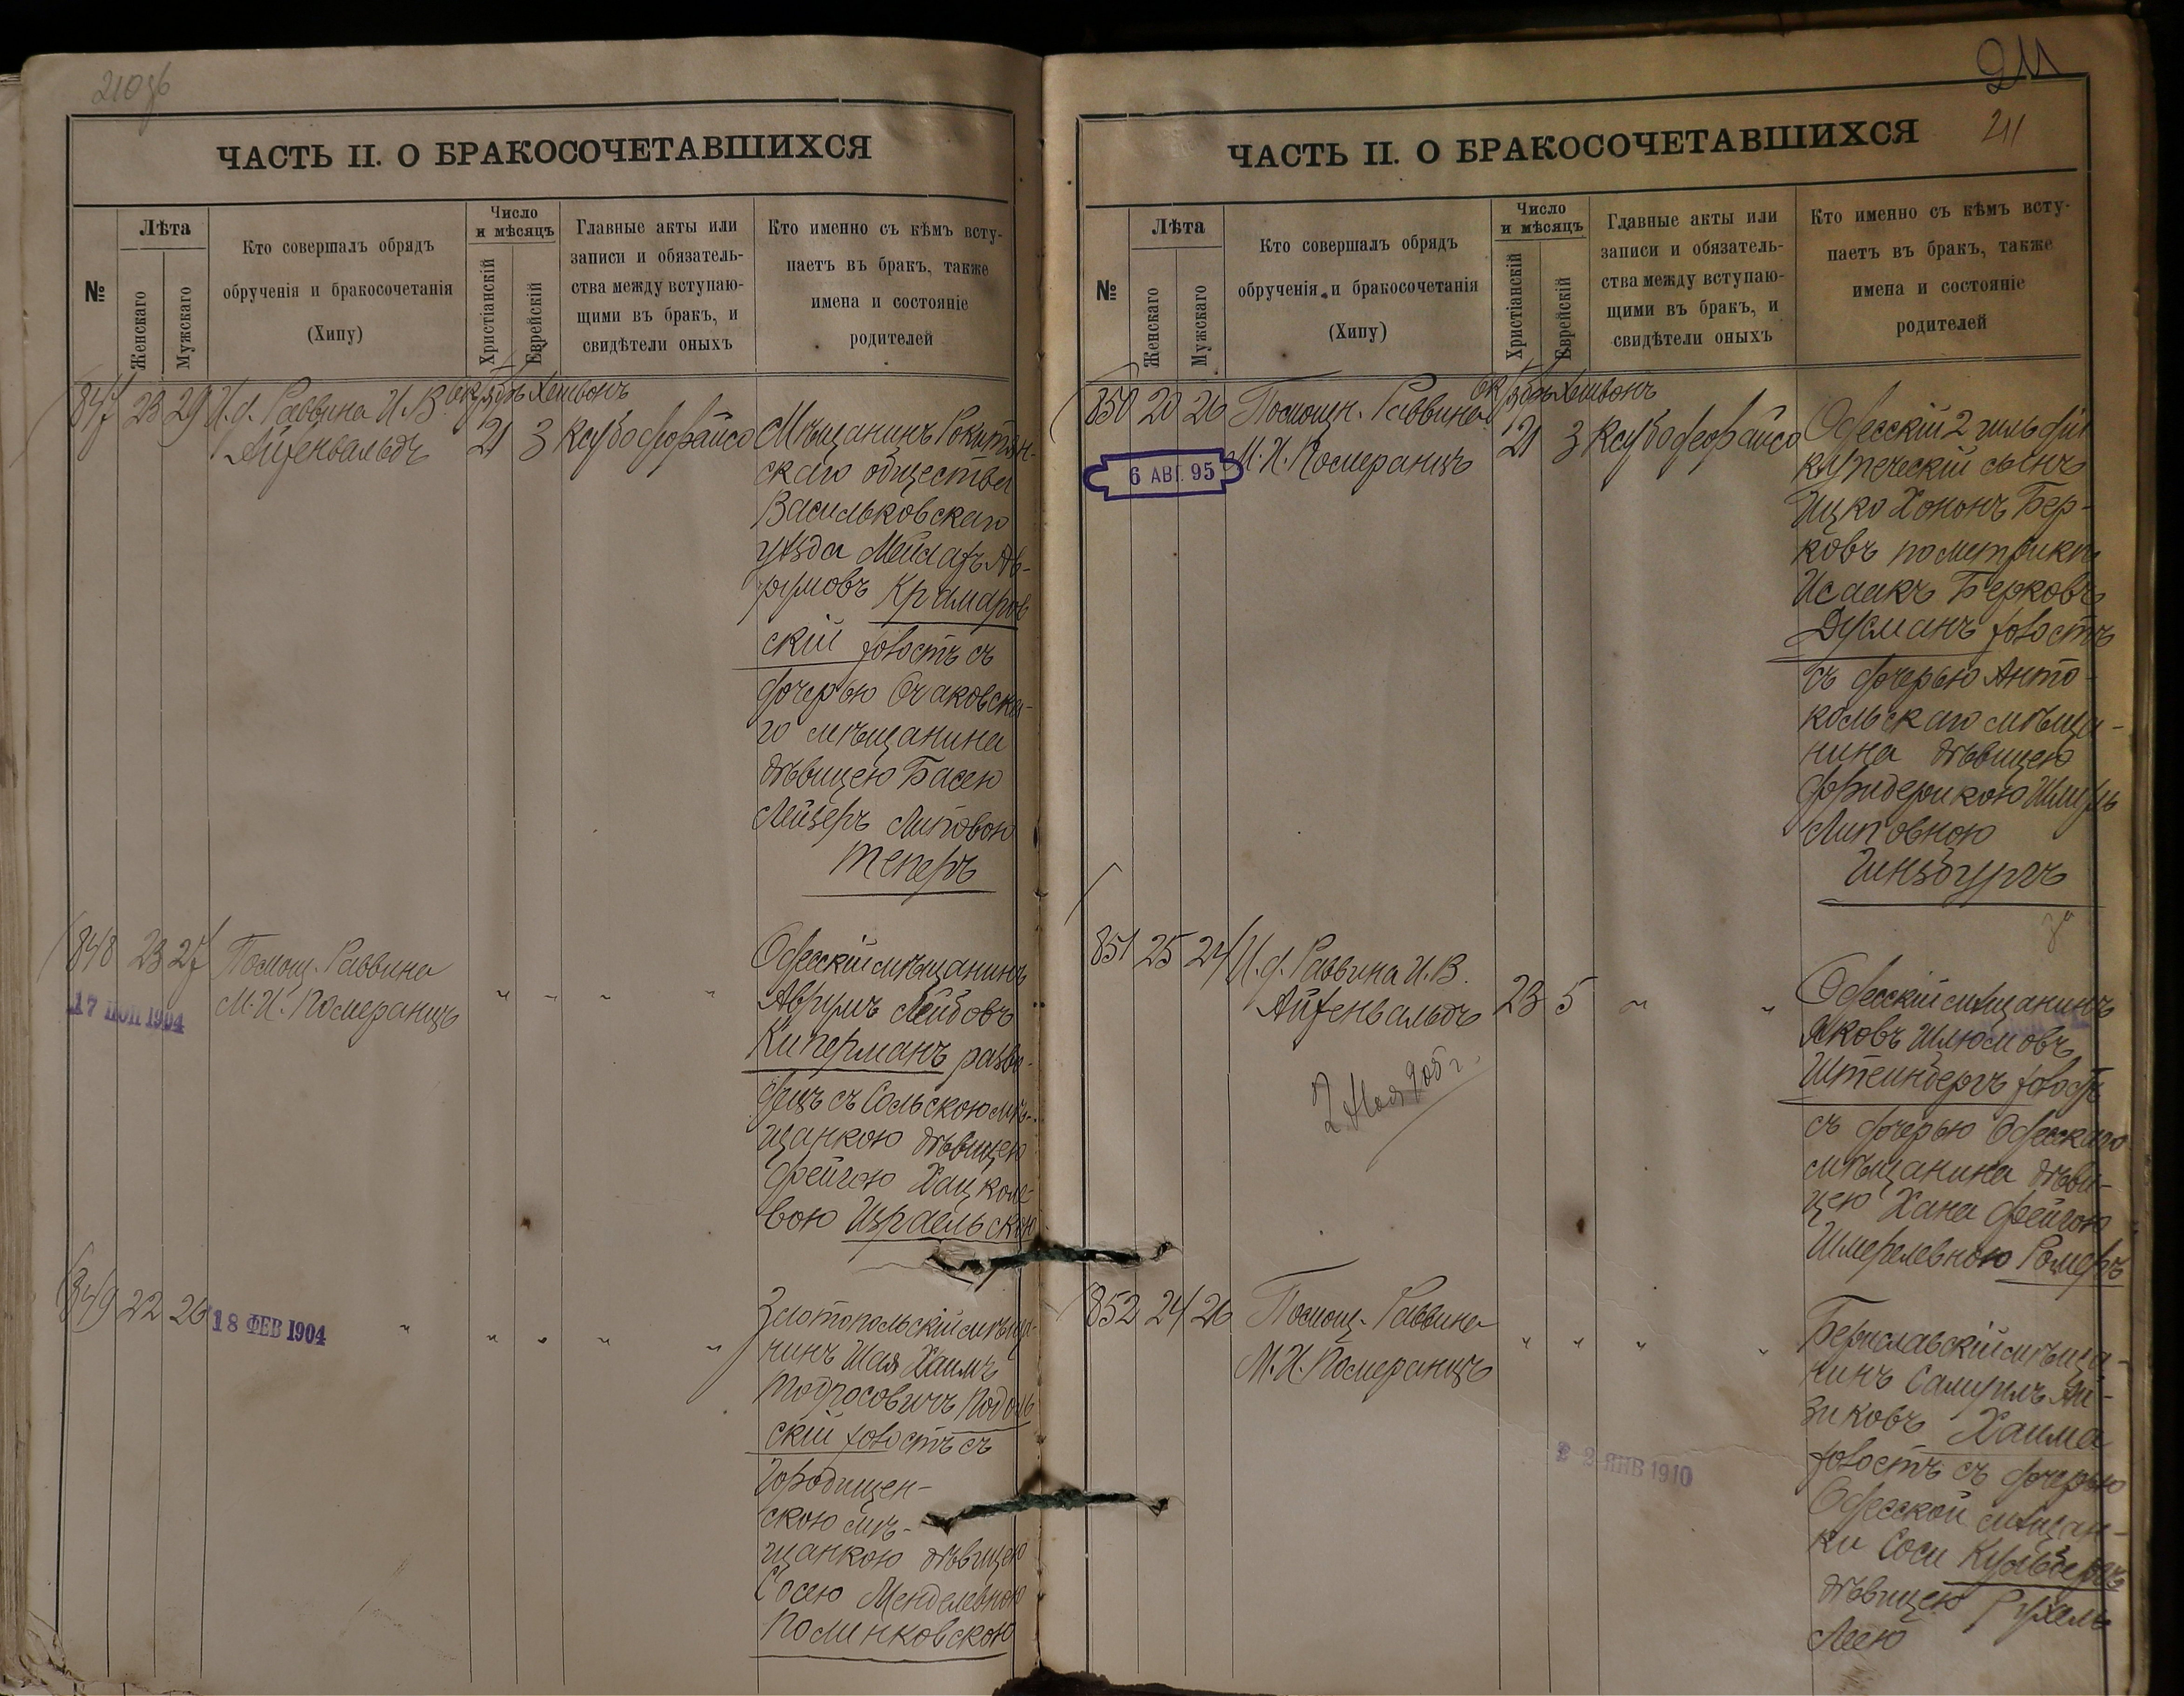 210об
ЧАСТЬ II. О БРАКОСОЧЕТАВШИХСЯ
№
Лѣта
Женскаго
Мужскаго
Кто совершалъ обрядъ
обрученія и бракосочетанія
(Хипу)
Число
и мѣсяцъ
Христіанскій
Еврейскій
Главные акты или
записи и обязатель-
ства между вступаю-
щими въ бракъ, и
свидѣтели оныхъ
Кто именно съ кѣмъ всту-
паетъ въ бракъ, также
имена и состояніе
родителей
847 23 29 И.д. Раввина И.В.
Айхенвальдъ
Октябрь Хешвонъ
21 3
Мѣщанинъ Рокитян-
скаго общества
Васильковскаго
уѣзда Мейлахъ Ав-
румовъ Крамаров
скій холостъ съ
дочерью Очаковска-
го мѣщанина
дѣвицею Басею
Лейзеръ Липовою
Теперъ
848 23 27 Помощ. Раввина
М.И. Померанцъ
" " " "
17 1904
Одесскій мѣщанинъ
Аврумъ Лейбовъ
Киперманъ разво-
децъ съ Сольскою мѣ-
щанкою дѣвицею
Фейгою Хацкеле-
вою Израельскою
849 22 26
18 ФЕВ 1904
" " " " "
Златопольскій мѣща-
нинъ Шая Хаимъ
Тодросовичъ Подоль
скій холостъ съ
Городищен-
скою мѣ-
щанкою дѣвицею
Сосею Менделевною
Полинковскою
211
211
ЧАСТЬ II. О БРАКОСОЧЕТАВШИХСЯ
№
Лѣта
Женскаго
Мужскаго
Кто совершалъ обрядъ
обрученія и бракосочетанія
(Хипу)
Число
и мѣсяцъ
Христіанскій
Еврейскій
Главные акты или
записи и обязатель-
ства между вступаю-
щими въ бракъ, и
свидѣтели оныхъ
Кто именно съ кѣмъ всту-
паетъ въ бракъ, также
имена и состояніе
родителей
850 20 26 Помощн. Раввина
М.И. Померанцъ
6 АВГ. 95
Октябрь Хешвонъ
21 3
Одесскій 2 гильдіи
купеческій сынъ
Ицко Хононъ Бер-
ковъ по метрикѣ
Исаакъ Берковъ
Дусманъ холостъ
съ дочерью Анто-
кольскаго мѣща-
нина дѣвицею
Фридерикою
Липовною
Гинзбургъ
851 25 24 И.д. Раввина И.В.
Айхенвальдъ
23 5 " "
2 Ноя 905 г.
Одесскій мѣщанинъ
Яковъ Шлюмовъ
Штеинбергъ холостъ
съ дочерью Одесскаго
мѣщанина дѣви-
цею Хана Фейгою
Шмерелевною Ромеръ
852 24 26 Помощ. Раввина
М.И. Померанцъ
" " " "
22 ЯНВ 1910
Бериславскій мѣща-
нинъ Самуилъ Аи-
зиковъ Хаима
холостъ съ дочерью
Одесской мѣщан-
ки Соси
дѣвицею Рухель
Леею